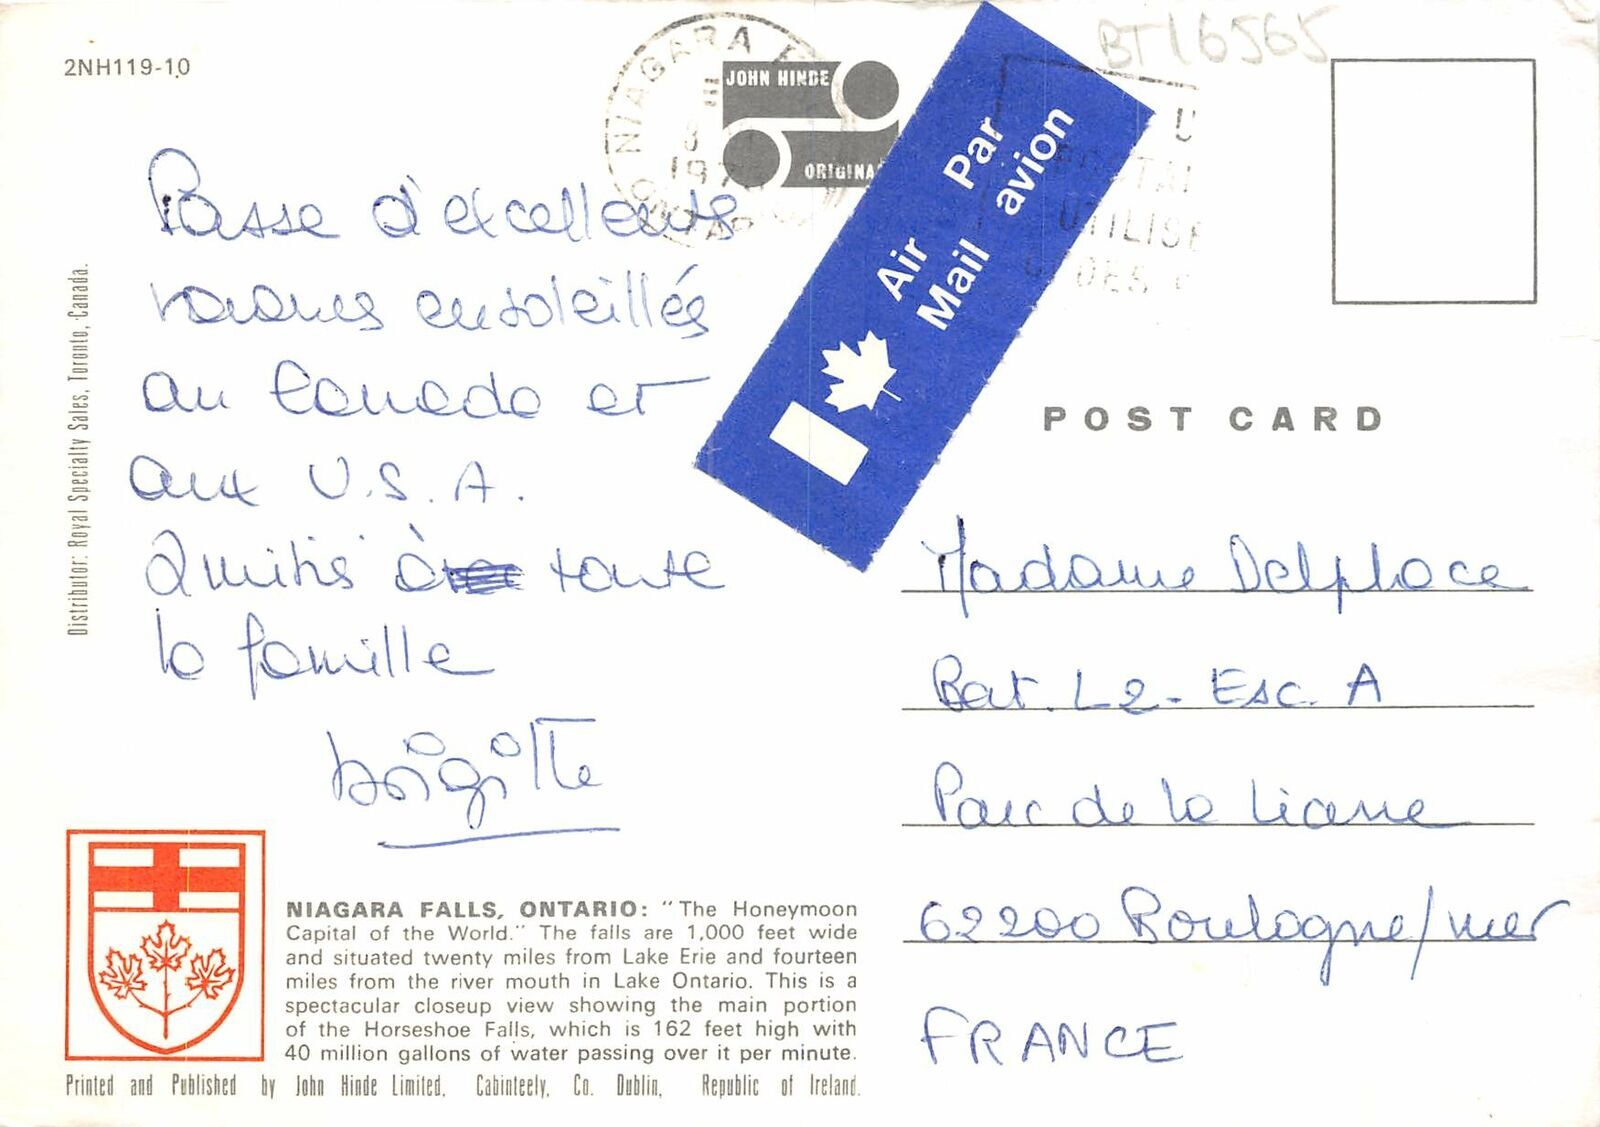 2NH119-10
BT16565
NIAGARA
JOHN HINDE
ORIGINA
Air Mail
Par avion
POSTAL
UTILISE
Passe d'excellents
vacances ensoleillés
au Canada et
aux U.S.A.
Amitiés à toute
la famille
Brigitte
POST CARD
Madame Delplace
Bat. L2 - Esc. A
Parc de la Liane
62200 Boulogne/mer
FRANCE
Distributor: Royal Specialty Sales, Toronto, Canada.
NIAGARA FALLS, ONTARIO: "The Honeymoon
Capital of the World." The falls are 1,000 feet wide
and situated twenty miles from Lake Erie and fourteen
miles from the river mouth in Lake Ontario. This is a
spectacular closeup view showing the main portion
of the Horseshoe Falls, which is 162 feet high with
40 million gallons of water passing over it per minute.
Printed and Published by John Hinde Limited, Cabinteely, Co. Dublin, Republic of Ireland.